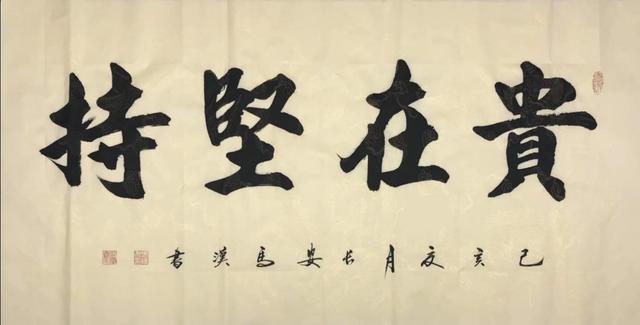 貴在堅持
己亥夏月長安馬漢書